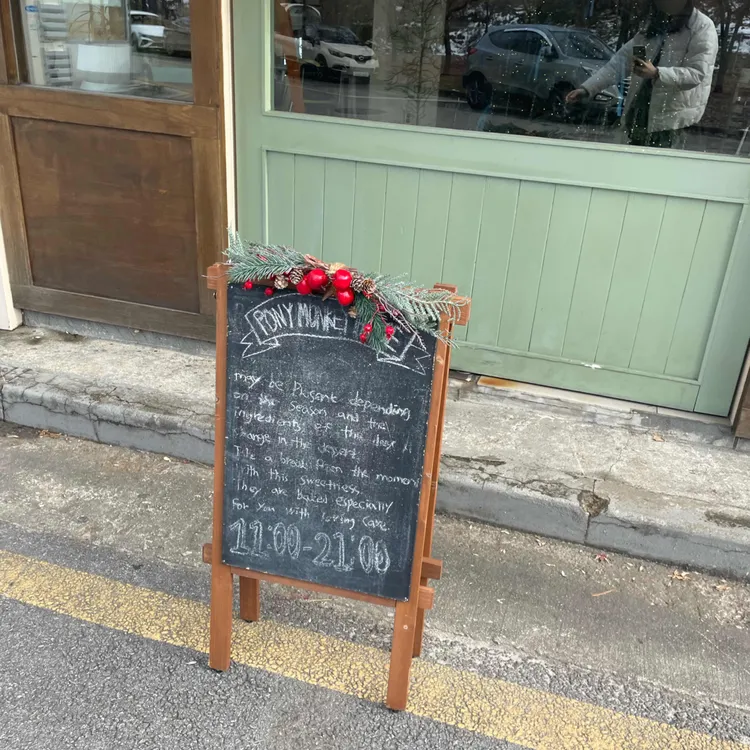 PONY MONKEY
may be present depending
on the season and the
ingredients of the day
change in the dessert.
a break from the moment
with this sweetness.
They are baked especially
for you with loving care.
11:00-21:00